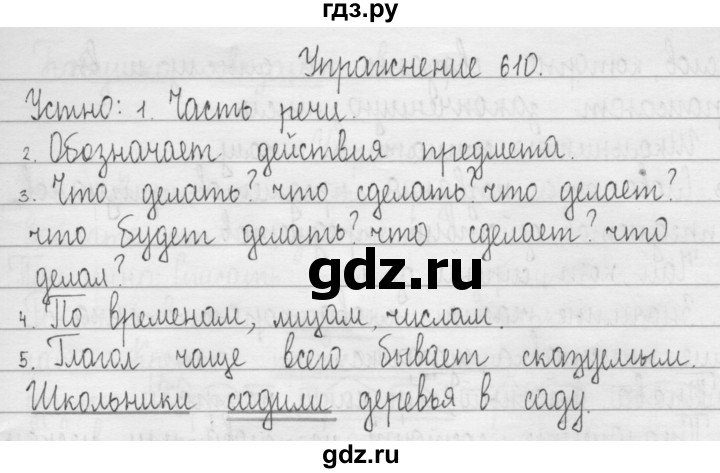 гдз.ру
Упражнение 610.
Устно: 1. Часть речи.
2. Обозначает действия предмета.
3. Что делать? что сделать? что делает?
что будет делать? что сделает? что
делал?
gdz.ru
4. По временам, лицам, числам.
5. Глагол чаще всего бывает сказуемым.
Школьники садили деревья в саду.
gdz.ru